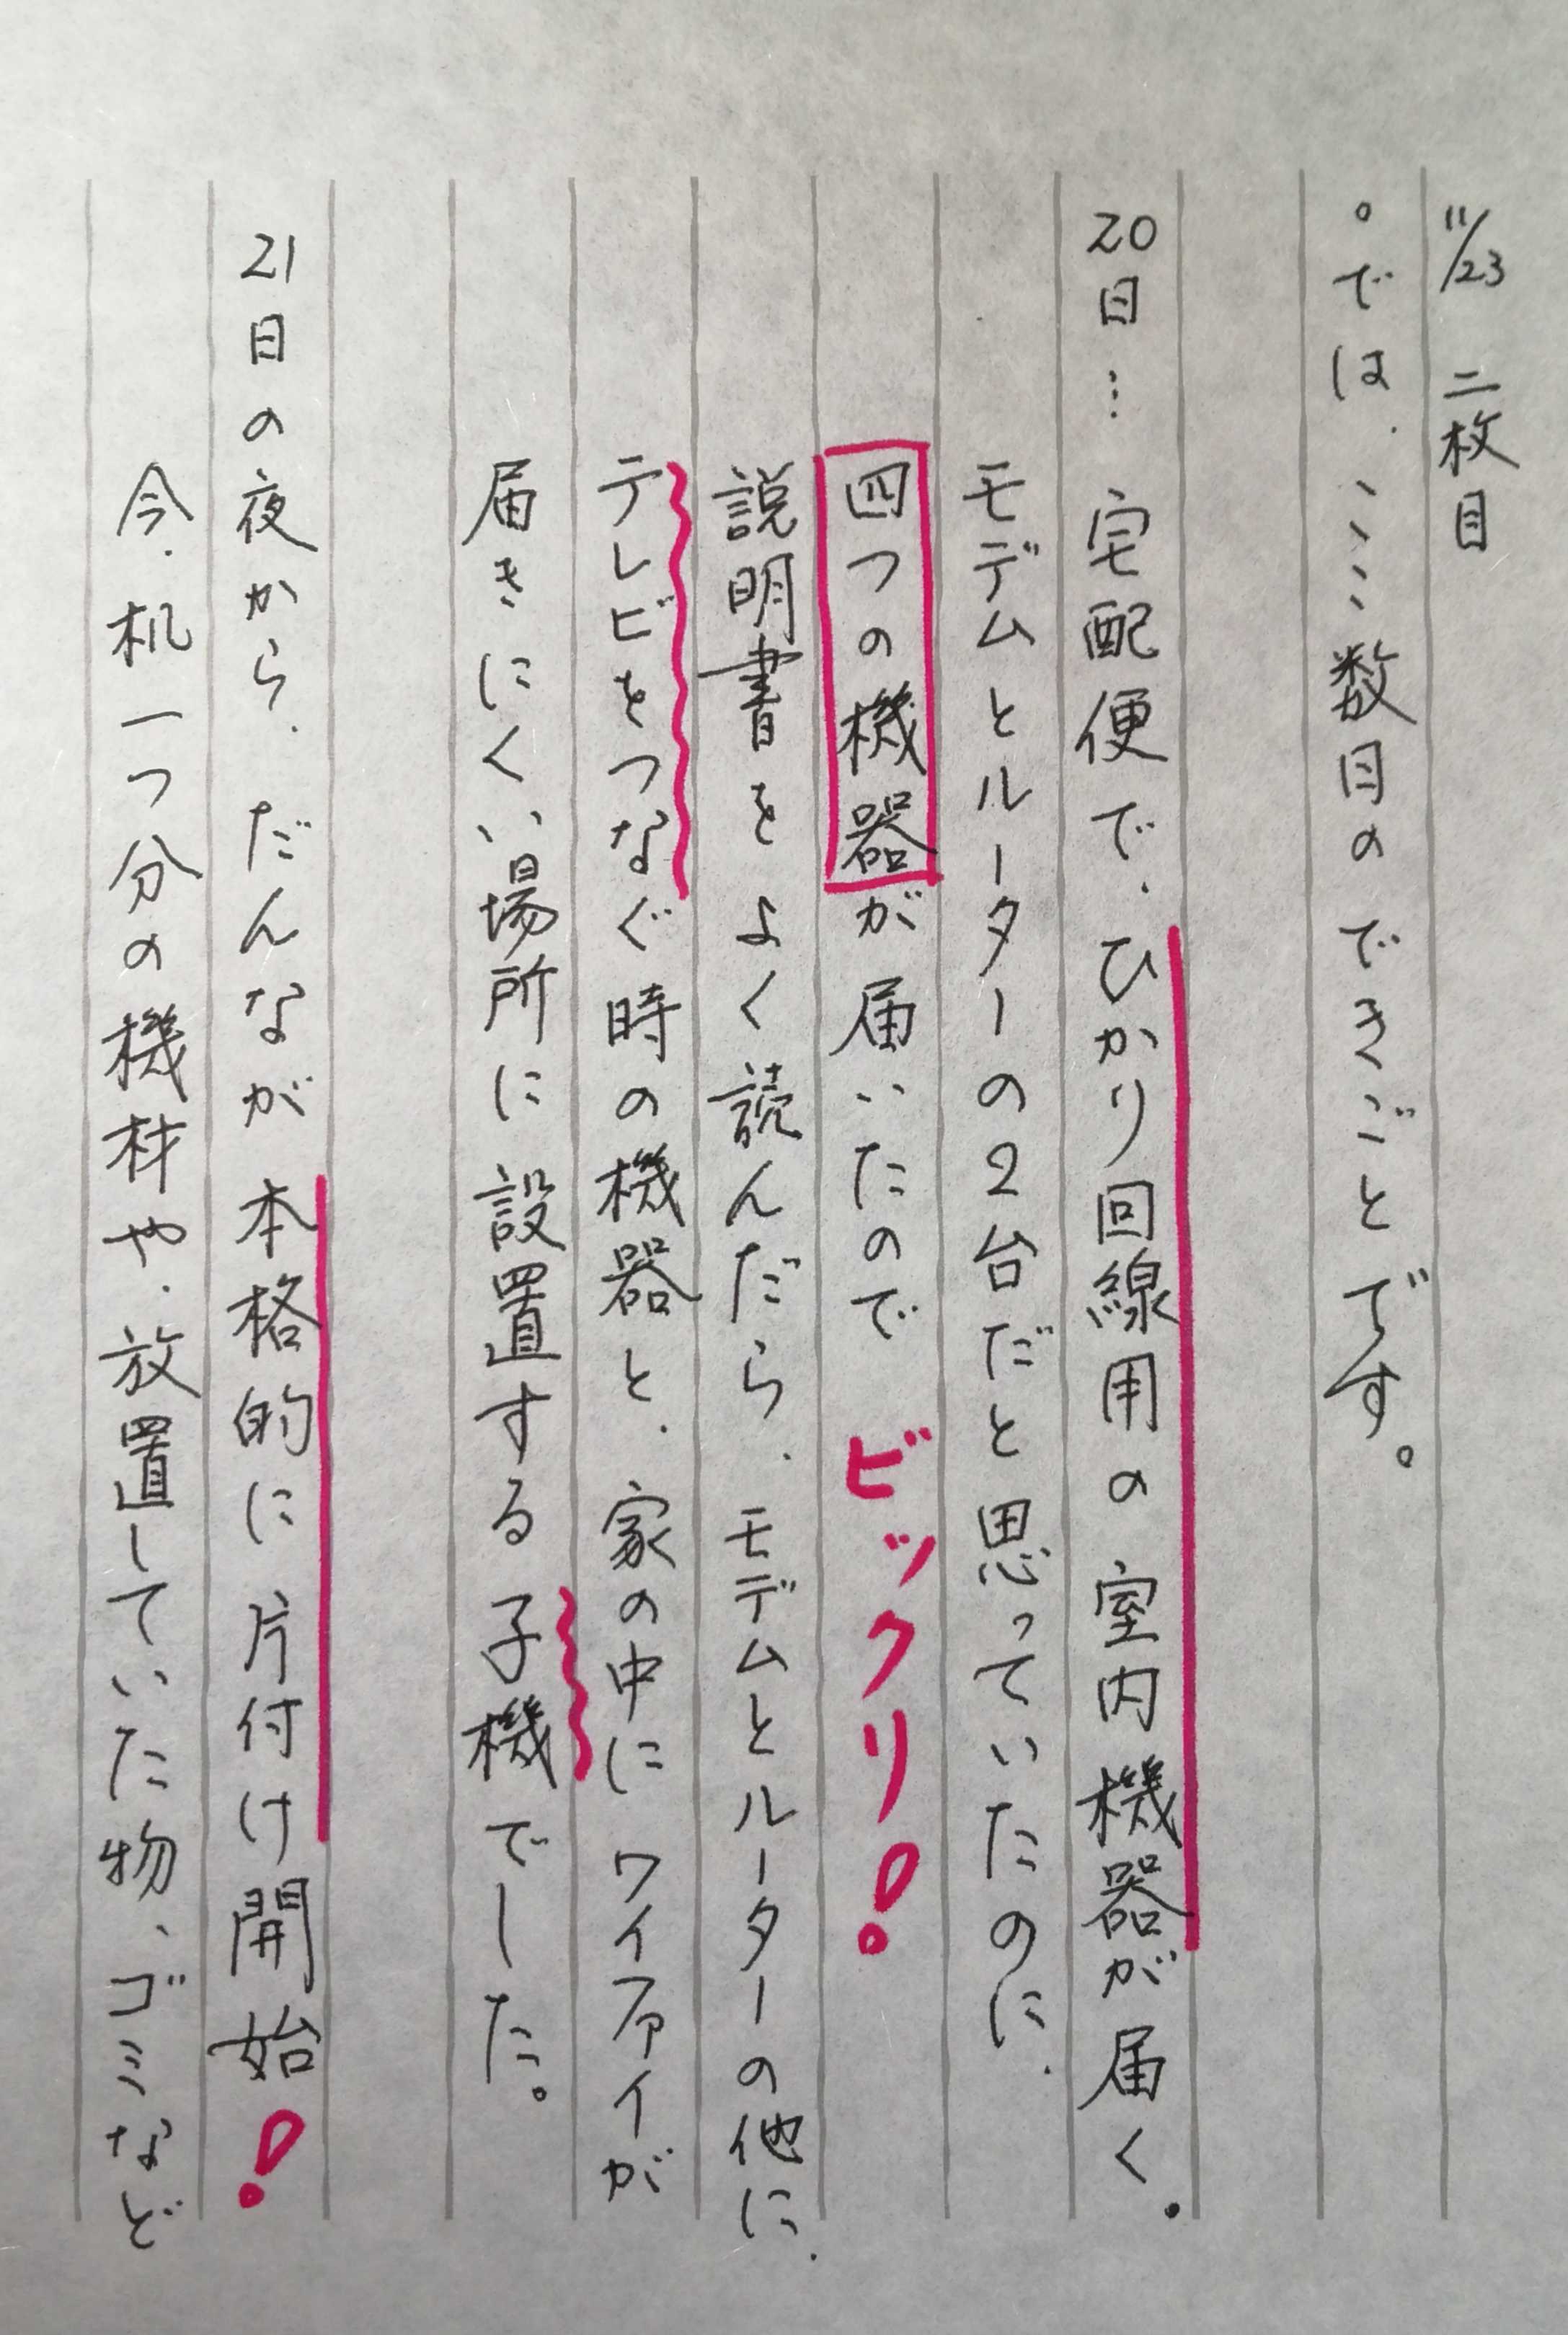 11/23 二枚目
○では、ここ数日のできごとです。
20日… 宅配便で、ひかり回線用の室内機器が届く。
モデムとルーターの2台だと思っていたのに、
四つの機器が届いたので ビックリ!
説明書をよく読んだら、モデムとルーターの他に、
テレビをつなぐ時の機器と、家の中に ワイファイが
届きにくい場所に設置する子機でした。
21日の夜から、だんなが 本格的に片付け開始!
今、机一つ分の機材や、放置していた物、ゴミなど